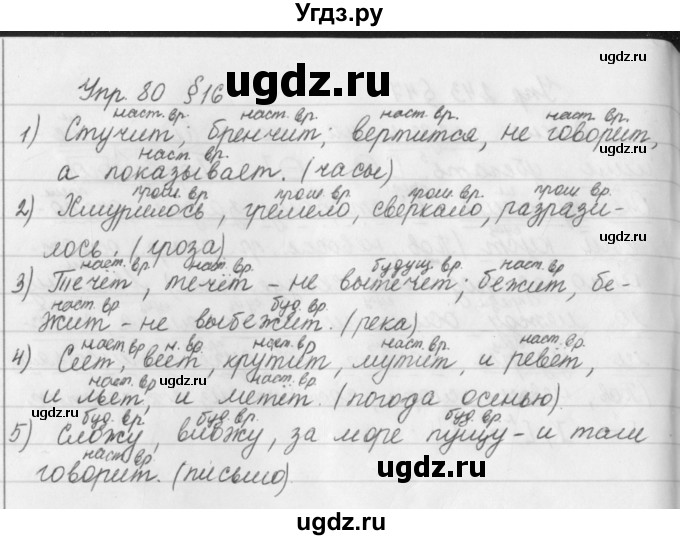 Угдз.ру
ugdz.ru
ugdz.ru
Упр. 80 §16
наст. вр. наст. вр. наст. вр. наст. вр.
1) Стучит; бренчит; вертится, не говорит,
ugdz.ru
наст. вр.
а показывает. (часы)
ugdz.ru
прош. вр. прош. вр. прош. вр. прош. вр.
2) Хмурилось, гремело, сверкало, разрази-
лось. (гроза)
ugdz.ru
наст. вр. наст. вр. будущ. вр. наст. вр.
3) Течёт, течёт - не вытечет; бежит, бе-
наст. вр. буд. вр.
жит - не выбежит. (река)
ugdz.ru
наст вр н. вр. наст. вр наст. вр. наст. вр.
4) Сеет, веет, крутит, мутит, и ревёт,
наст. вр наст. вр.
и льёт, и метёт. (погода осенью).
ugdz.ru
ugdz.ru
буд. вр. буд. вр. буд. вр.
5) Сложу, вложу, за море пущу - и там
наст вр.
говорит. (письмо)
ugdz.ru
ugdz.ru
ugdz.ru